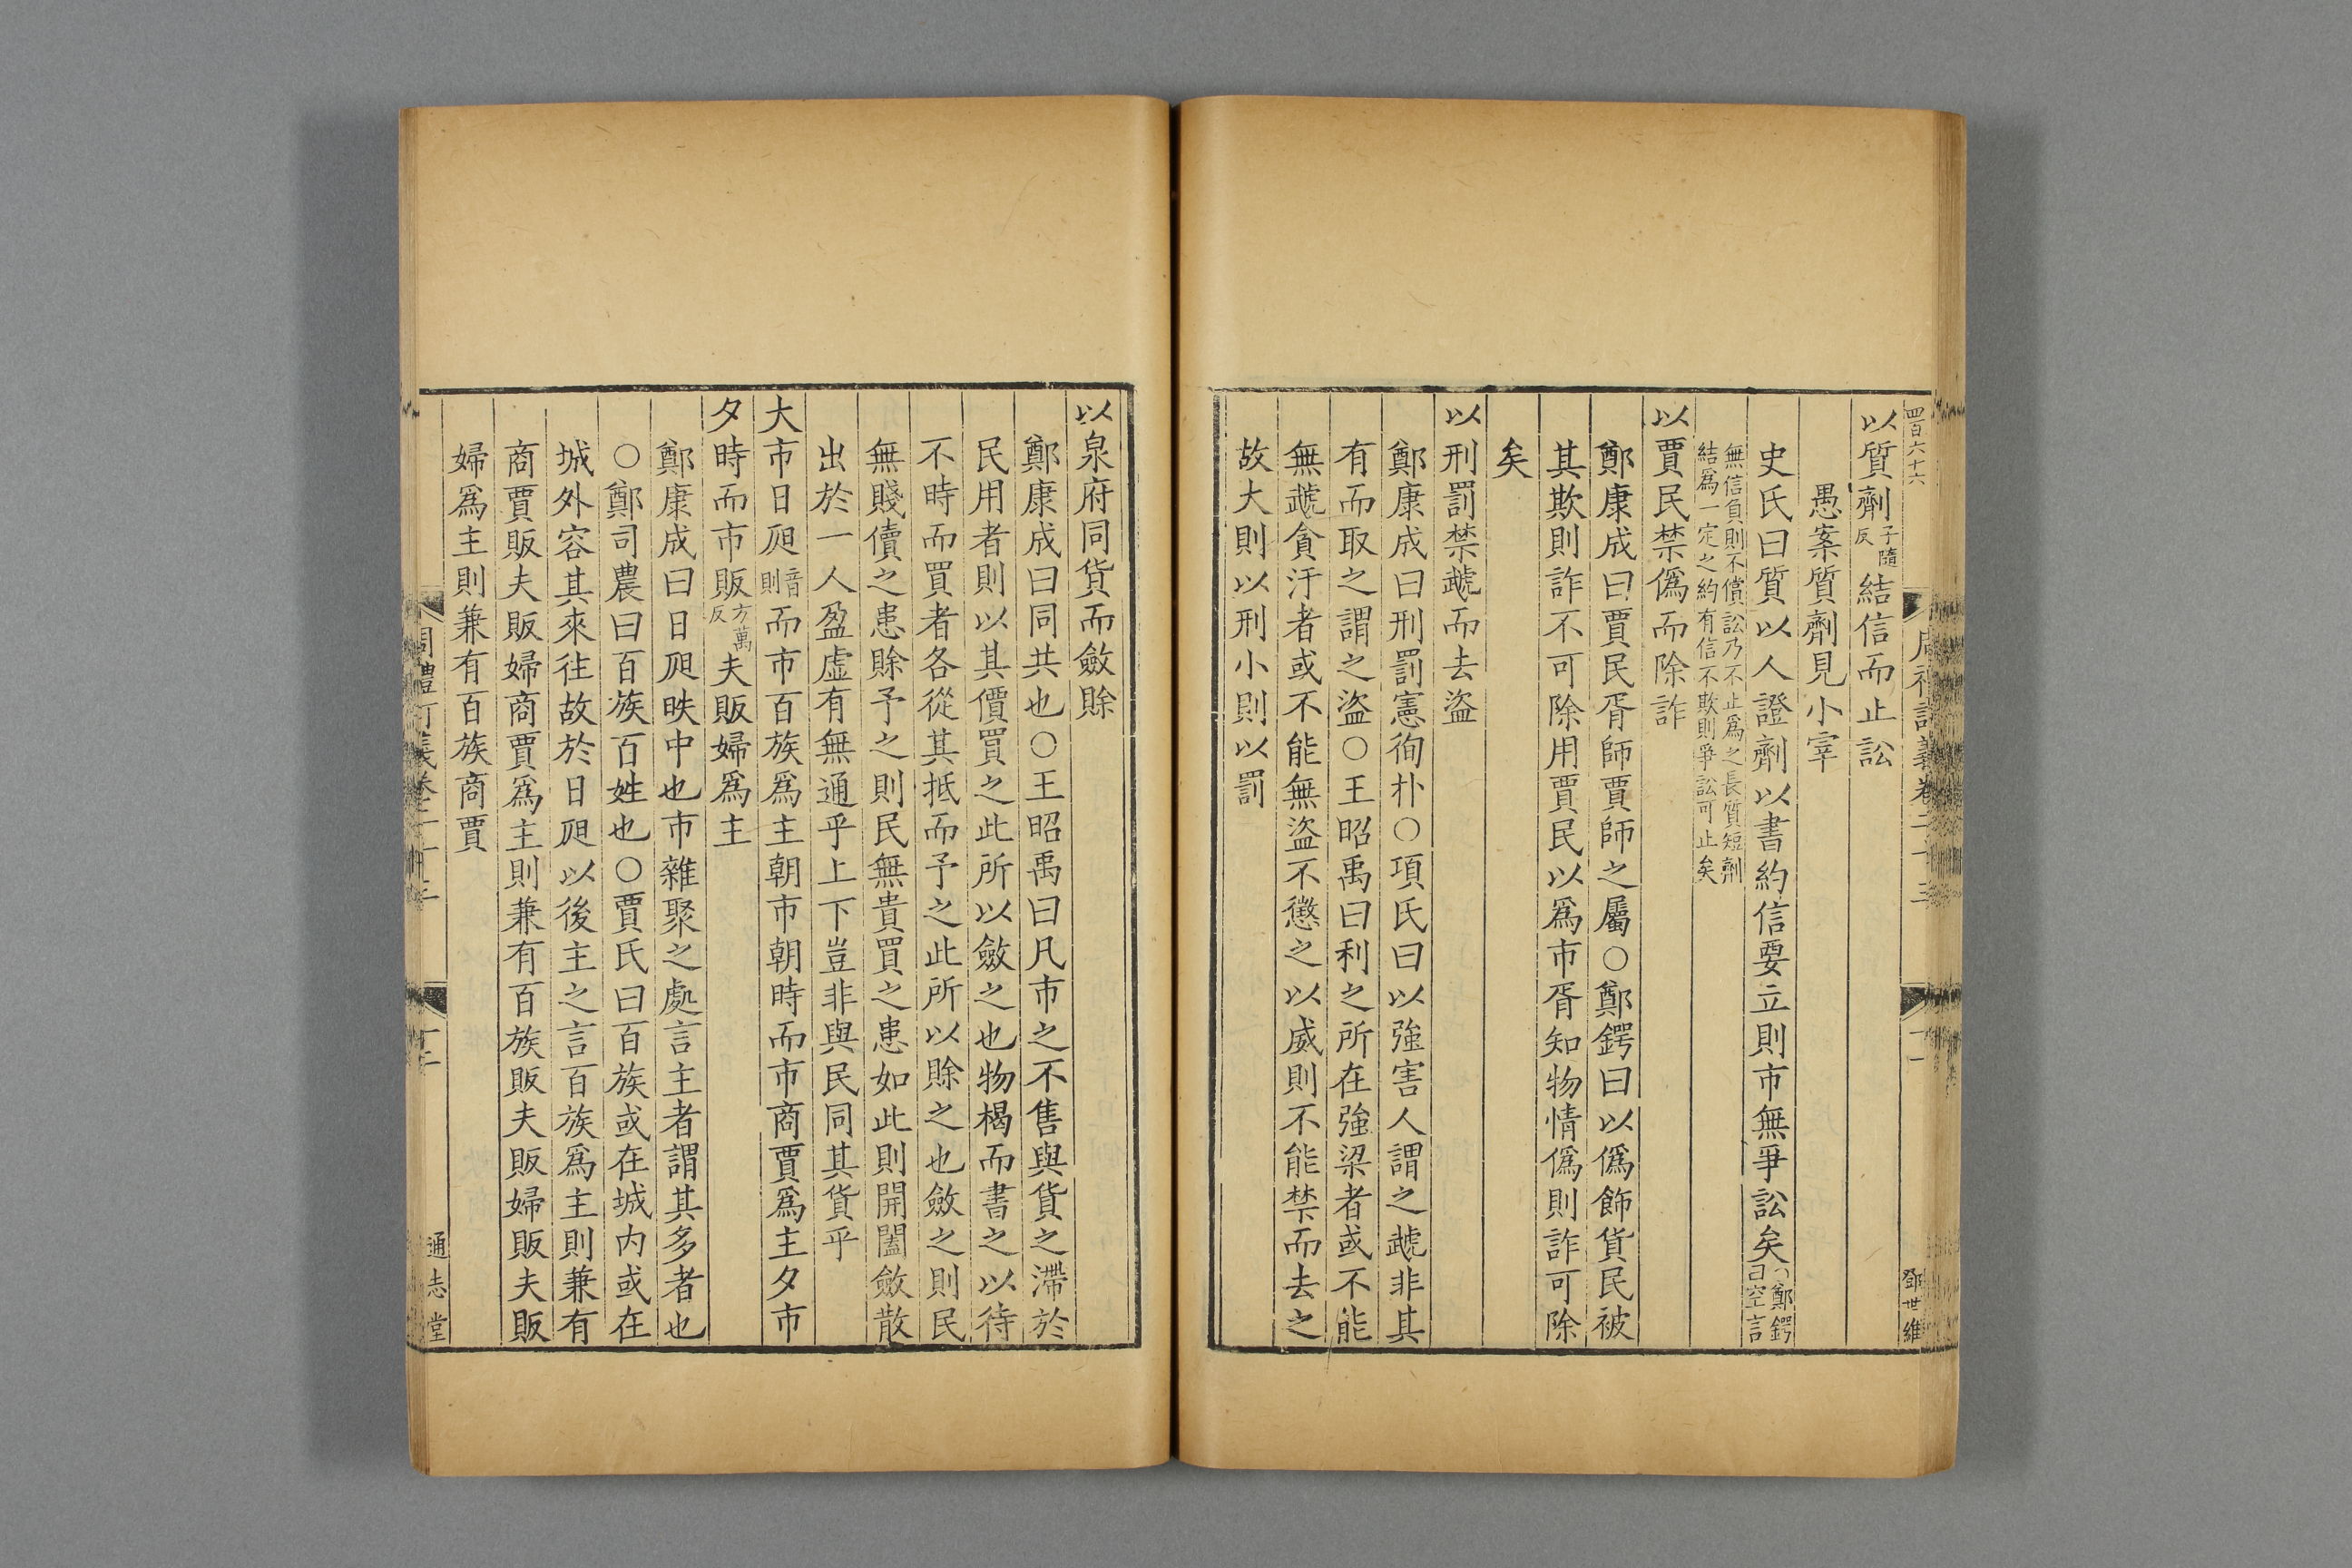 四百六十六
周禮訂義卷二十三
十一
鄧世維
以質劑子隨反結信而止訟
愚案質劑見小宰
史氏曰質以人證劑以書約信要立則市無爭訟矣○鄭鍔曰空言
無信負則不償訟乃不止爲之長質短劑
結爲一定之約有信不欺則爭訟可止矣
以賈民禁僞而除詐
鄭康成曰賈民胥師賈師之屬○鄭鍔曰以僞飾貨民被
其欺則詐不可除用賈民以爲市胥知物情僞則詐可除
矣
以刑罰禁虣而去盜
鄭康成曰刑罰憲徇朴○項氏曰以強害人謂之虣非其
有而取之謂之盜○王昭禹曰利之所在強梁者或不能
無虣貪汙者或不能無盜不懲之以威則不能禁而去之
故大則以刑小則以罰
以泉府同貨而斂賖
鄭康成曰同共也○王昭禹曰凡市之不售與貨之滯於
民用者則以其價買之此所以斂之也物楬而書之以待
不時而買者各從其抵而予之此所以賖之也斂之則民
無賤儥之患賖予之則民無貴買之患如此則開闔斂散
出於一人盈虛有無通乎上下豈非與民同其貨乎
大市日昃音則而市百族爲主朝市朝時而市商賈爲主夕市
夕時而市販方萬反夫販婦爲主
鄭康成曰日昃昳中也市雜聚之處言主者謂其多者也
○鄭司農曰百族百姓也○賈氏曰百族或在城内或在
城外容其來往故於日昃以後主之言百族爲主則兼有
商賈販夫販婦商賈爲主則兼有百族販夫販婦販夫販
婦爲主則兼有百族商賈
通志堂